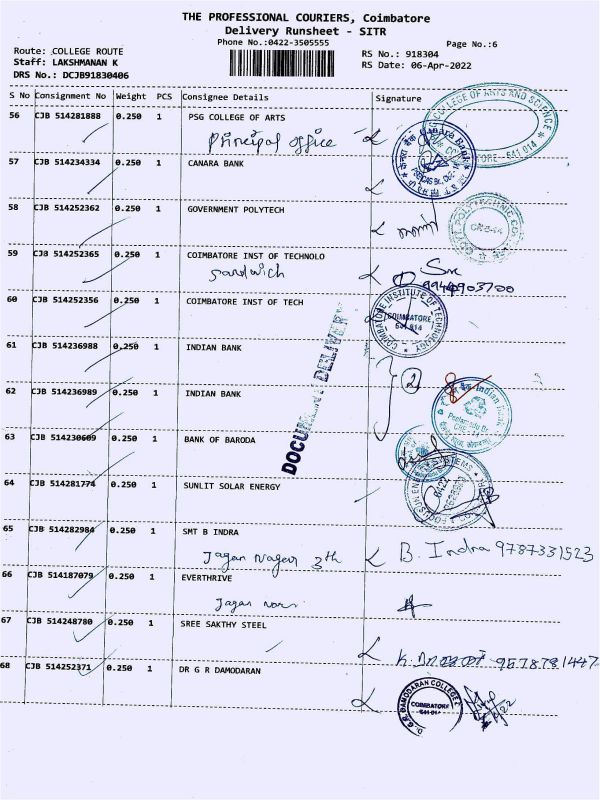 THE PROFESSIONAL COURIERS, Coimbatore
Delivery Runsheet - SITR
Phone No.:0422-3505555
Page No.:6
Route: COLLEGE ROUTE
Staff: LAKSHMANAN K
DRS No.: DCJB91830406
RS No.: 918304
RS Date: 06-Apr-2022
S No Consignment No Weight PCS Consignee Details Signature
56 CJB 514281888 0.250 1 PSG COLLEGE OF ARTS
Principal office
COLLEGE OF ARTS AND SCIENCE
57 CJB 514234334 0.250 1 CANARA BANK
Canara Bank
58 CJB 514252362 0.250 1 GOVERNMENT POLYTECH
59 CJB 514252365 0.250 1 COIMBATORE INST OF TECHNOLO
Sandwich
60 CJB 514252356 0.250 1 COIMBATORE INST OF TECH
COIMBATORE INSTITUTE OF TECHNOLOGY
COIMBATORE
641 014
DOCUMENT DELIVERY
61 CJB 514236988 0.250 1 INDIAN BANK
2
62 CJB 514236989 0.250 1 INDIAN BANK
Indian Bank
63 CJB 514230609 0.250 1 BANK OF BARODA
64 CJB 514281774 0.250 1 SUNLIT SOLAR ENERGY
65 CJB 514282984 0.250 1 SMT B INDRA
Jagan Nagar 3th B. Indra 9787331523
66 CJB 514187079 0.250 1 EVERTHRIVE
Jagan
67 CJB 514248780 0.250 1 SREE SAKTHY STEEL
68 CJB 514252371 0.250 1 DR G R DAMODARAN
COIMBATORE